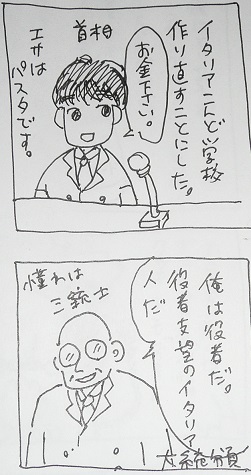 イタリアこんど学校
作り直すことにした。
お金下さい。
首相
エサは
パスタです。
俺は役者だ。
役者志望のイタリア
人だ。
大統領
憧れは
三銃士